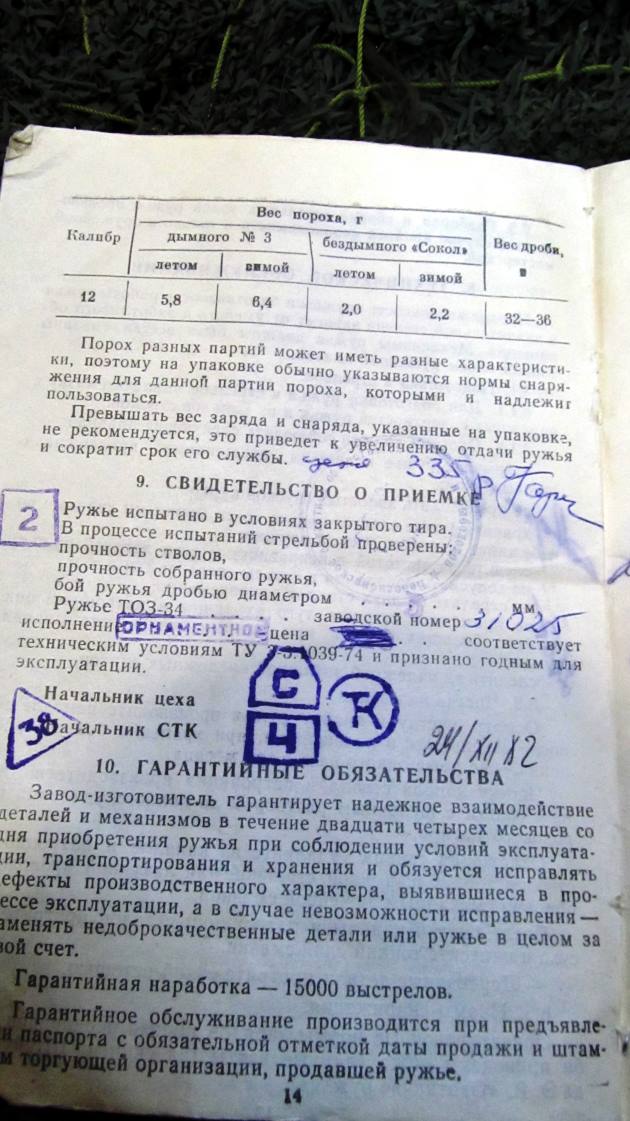 Калибр
Вес пороха, г
Вес дроби, г
дымного № 3
бездымного «Сокол»
летом
зимой
летом
зимой
12
5,8
6,4
2,0
2,2
32—36
Порох разных партий может иметь разные характеристи-
ки, поэтому на упаковке обычно указываются нормы снаря-
жения для данной партии пороха, которыми и надлежит
пользоваться.
Превышать вес заряда и снаряда, указанные на упаковке,
не рекомендуется, это приведет к увеличению отдачи ружья
и сократит срок его службы. цена 335 р
9. СВИДЕТЕЛЬСТВО О ПРИЕМКЕ
2
Ружье испытано в условиях закрытого тира.
В процессе испытаний стрельбой проверены:
прочность стволов,
прочность собранного ружья,
бой ружья дробью диаметром . . . . . . . мм.
Ружье ТОЗ-34 . . . . заводской номер 31025
исполнение ОРНАМЕНТНОЕ цена . . соответствует
техническим условиям ТУ 3-3.1039-74 и признано годным для
эксплуатации.
Начальник цеха
С
38
Начальник СТК
Ч
24/XII 82
10. ГАРАНТИЙНЫЕ ОБЯЗАТЕЛЬСТВА
Завод-изготовитель гарантирует надежное взаимодействие
деталей и механизмов в течение двадцати четырех месяцев со
дня приобретения ружья при соблюдении условий эксплуата-
ции, транспортирования и хранения и обязуется исправлять
дефекты производственного характера, выявившиеся в про-
цессе эксплуатации, а в случае невозможности исправления —
заменять недоброкачественные детали или ружье в целом за
свой счет.
Гарантийная наработка — 15000 выстрелов.
Гарантийное обслуживание производится при предъявле-
и паспорта с обязательной отметкой даты продажи и штам-
м торгующей организации, продавшей ружье.
14